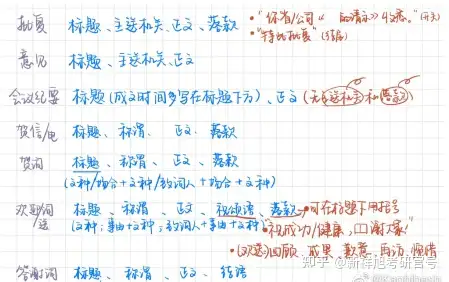 批复 标题、主送机关、正文、落款 •“你省/公司《 的请示》收悉。”(开头)
•“特此批复”(结尾)
意见 标题、主送机关、正文
会议纪要 标题(成文时间多写在标题下方)、正文(无主送机关和落款)
贺信/电 标题、称谓、正文、落款
贺词 标题、称谓、正文、落款
(文种/场合+文种/致词人+场合+文种)
欢迎词/送 标题、称谓、正文、祝颂语、落款→可在标题下用括号
(文种;事由+文种;致词人+事由+文种) “祝成功/健康,谢大家!”
•(欢送)回顾、成果、歉意、再访、惜别
答谢词 标题、称谓、正文、结语
知乎 @新祥旭考研官号